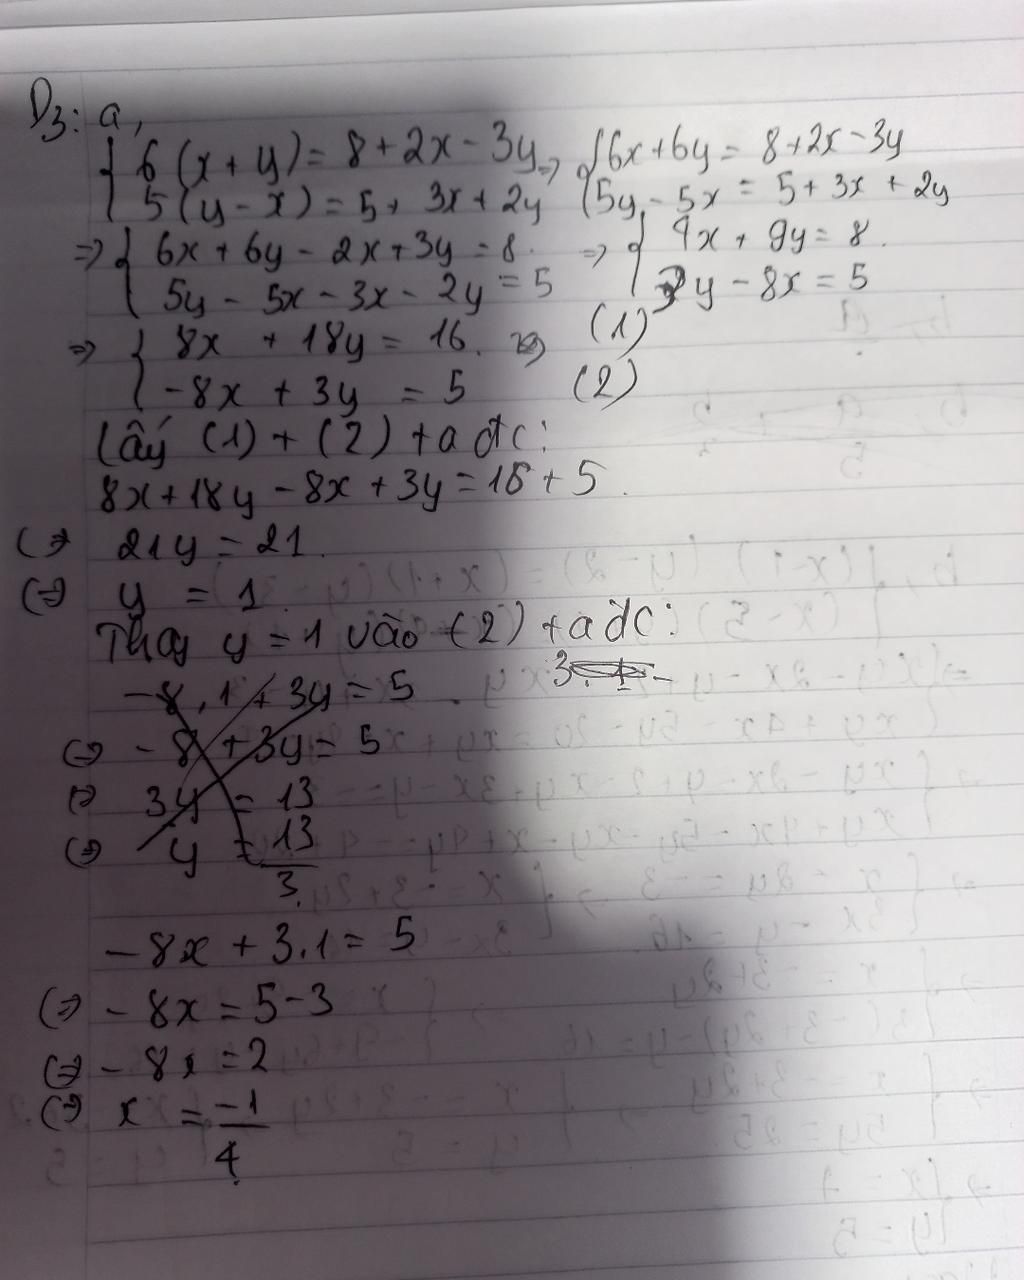 D3: a,
{ 6(x+y) = 8+2x-3y => { 6x+6y = 8+2x-3y
5(y-x) = 5+3x+2y 5y-5x = 5+3x+2y
=> { 6x+6y-2x+3y = 8. => { 4x+9y = 8.
5y-5x-3x-2y = 5 3y-8x = 5
=> { 8x +18y = 16. (1)
-8x+3y = 5 (2)
Lấy (1)+(2) +a đc:
8x+18y-8x+3y = 16+5.
(=> 21y = 21.
(=> y = 1.
Thay y = 1 vào (2) +a đc:
-8.1+3y = 5.
(=> -8+3y = 5
(=> 3y = 13
(=> y = 13/3.
-8x+3.1 = 5
(=> -8x = 5-3
(=> -8x = 2
(=> x = -1/4